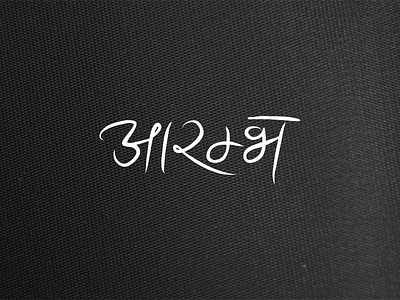 आरम्भ